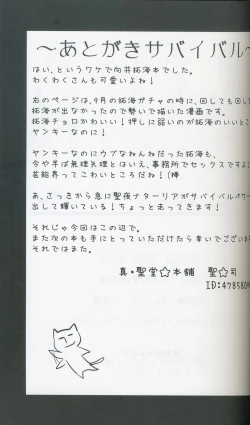 ～あとがきサバイバル～
はい、というワケで向井拓海本でした。
わくわくさんも可愛いよね！
右のページは、9月の拓海ガチャの時に、回しても回して
拓海が出なかったので勢いで描いた漫画です。
拓海チョロかわいい！押しに弱いのが拓海のいいとこ
ヤンキーなのに！
ヤンキーなのにウブなねんねだった拓海も、
今や半ば無理矢理とはいえ、事務所でセックスですよ
芸能界ってこわいところだね！(棒
あ、さっきから急に聖夜ナターリアがサバイバルパワー
出して輝いている！ちょっと走ってきます！
それじゃ今回はこの辺で。
また次の本も手にとっていただけたら幸いでございま
それではまた。
真・聖堂☆本舗　聖☆司
ID:4785809